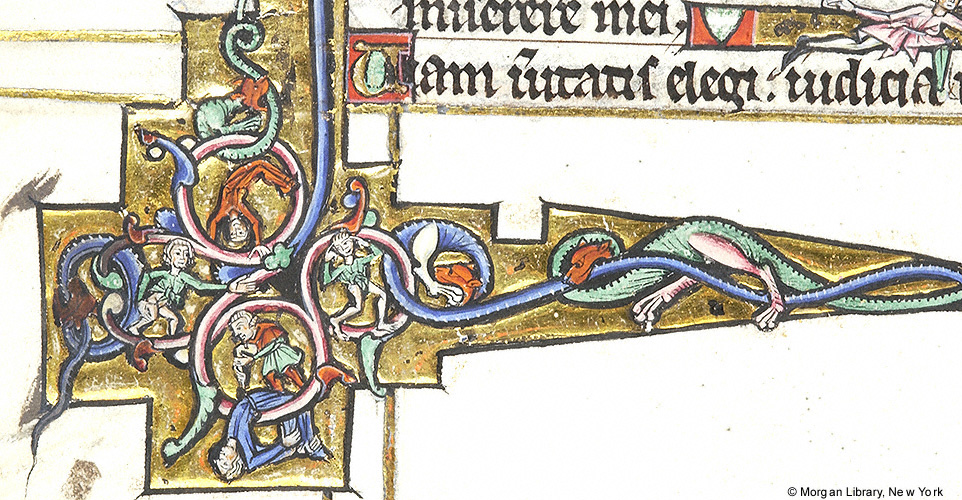 miserere mei,
Uiam ũitatis elegi: iudicia
© Morgan Library, New York